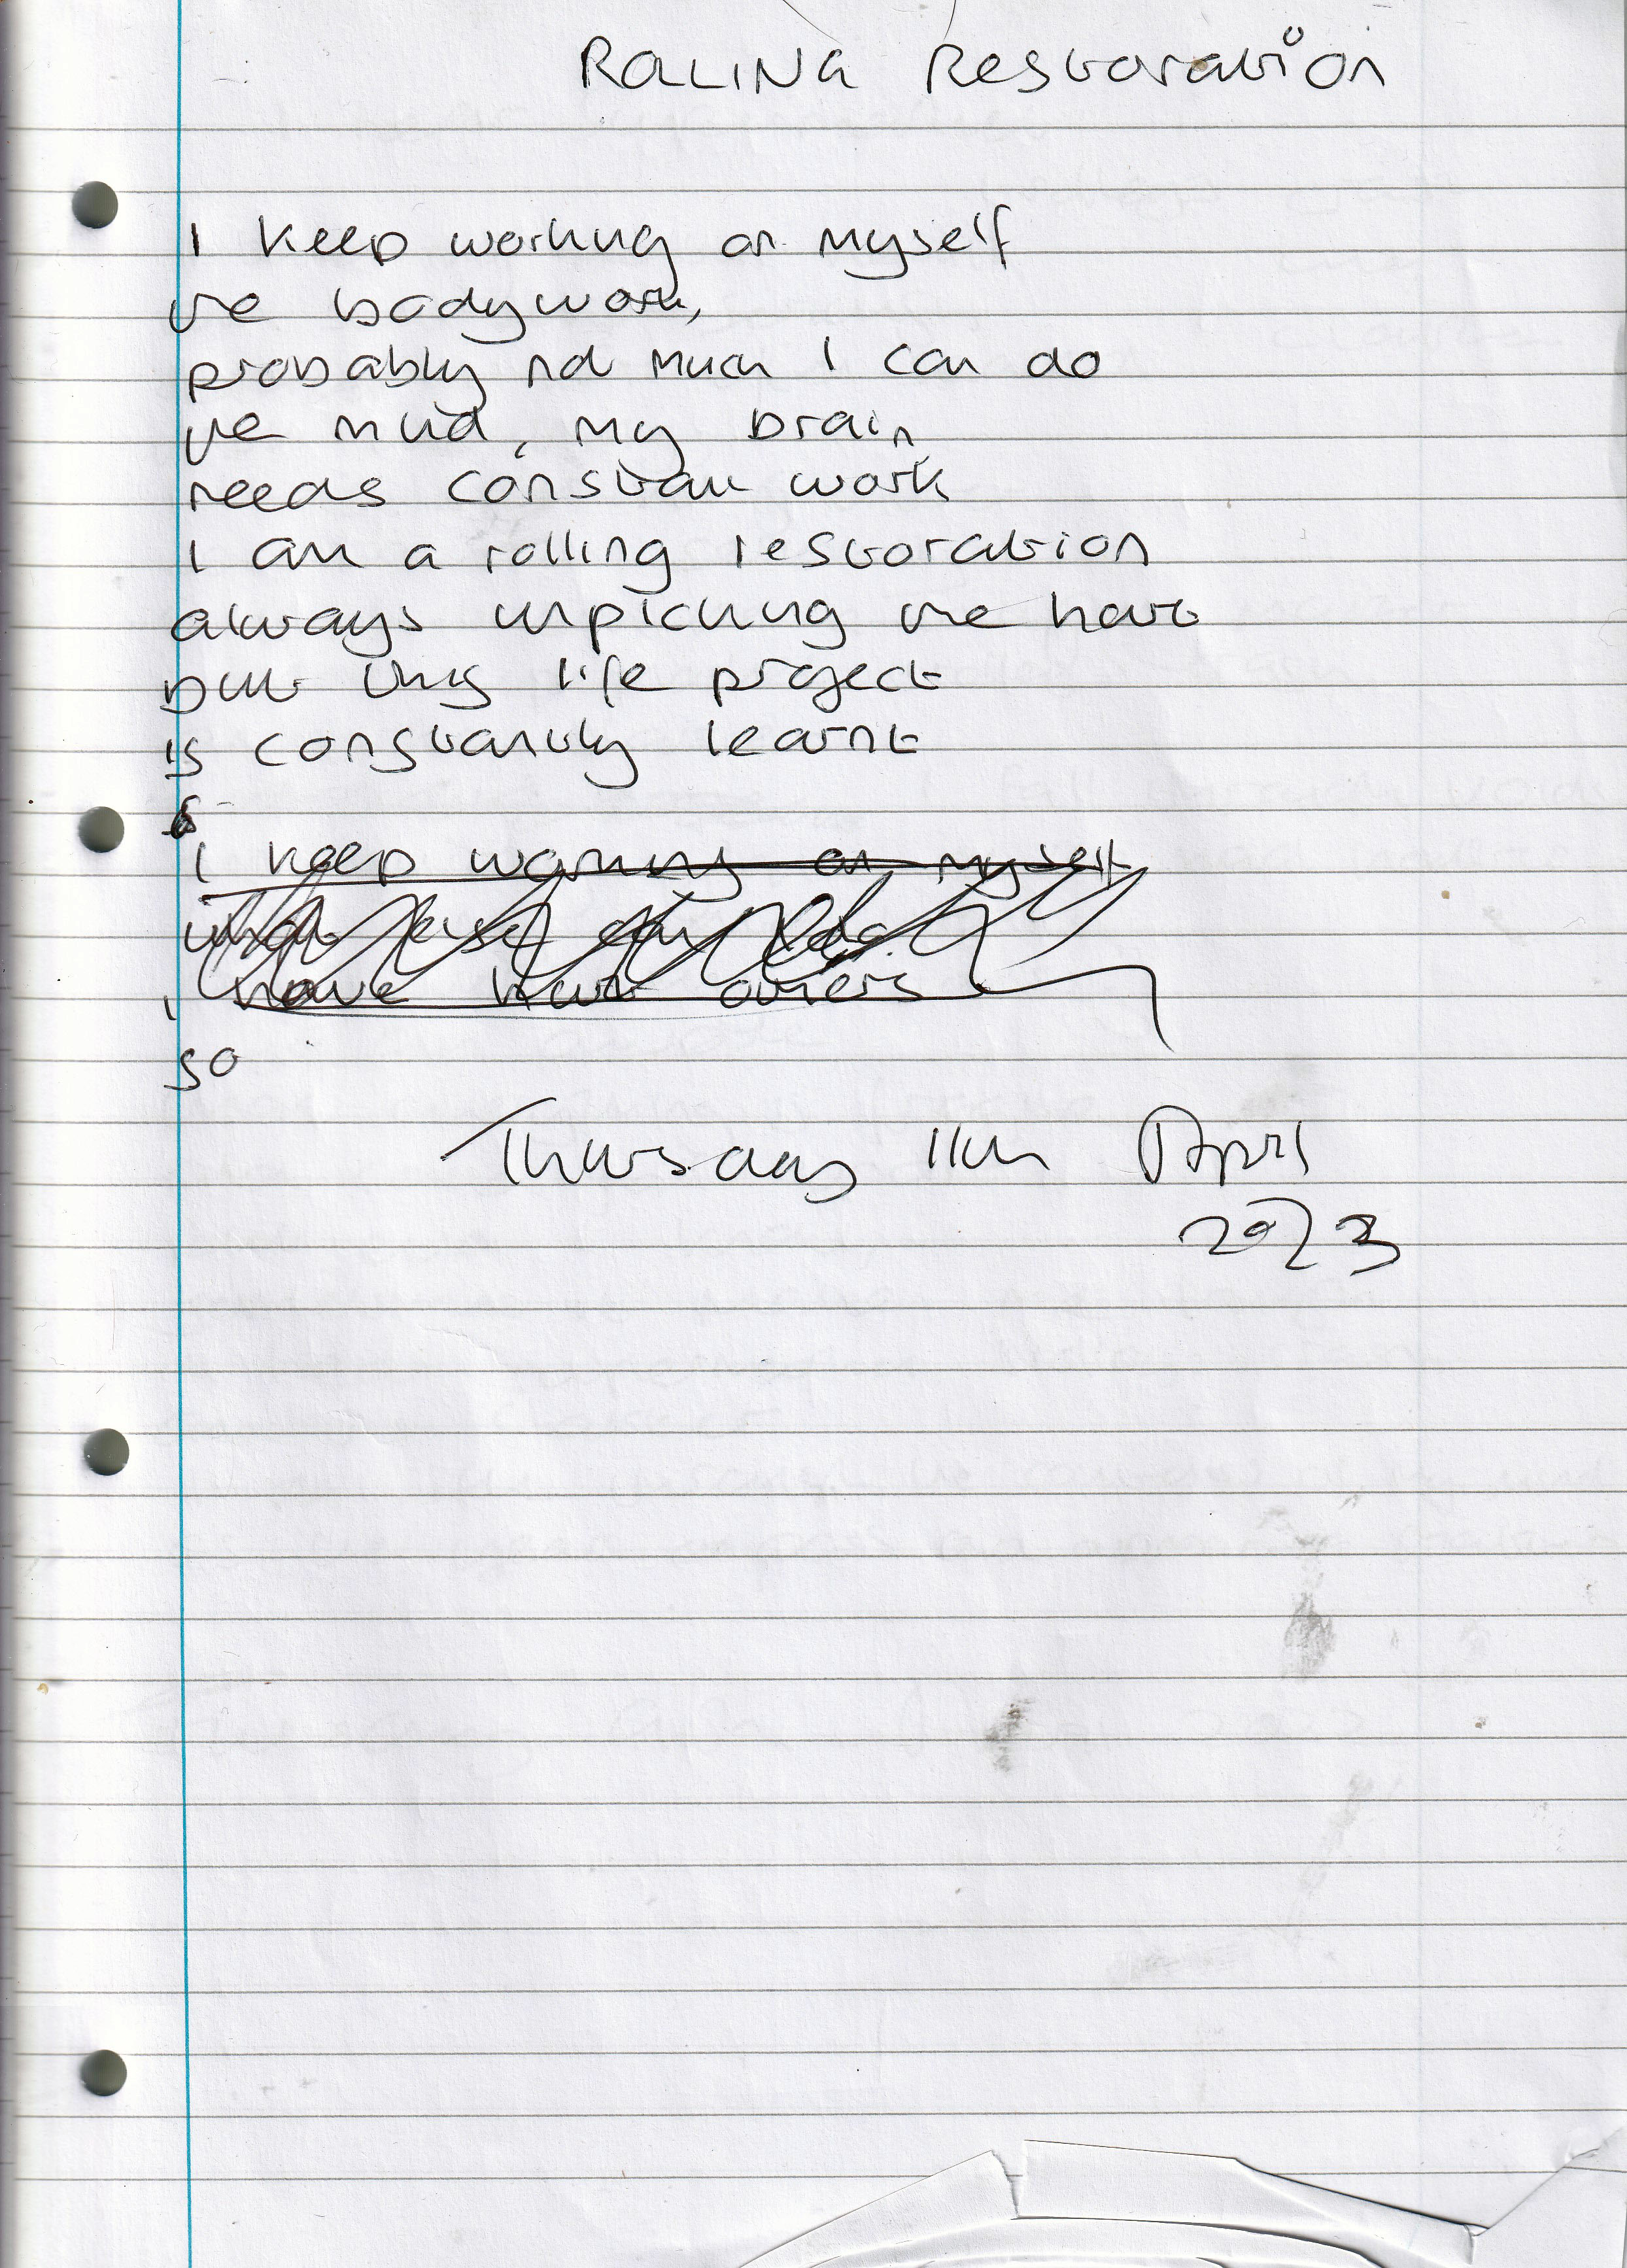 ROLLING Restoration
I keep working on myself
the bodywork,
probably not much I can do
the mind, my brain
needs constant work
I am a rolling restoration
always unpicking the hurt
but this life project
is constantly learnt
I keep working on myself
I have hurt others
so
Thursday 11th April
2023